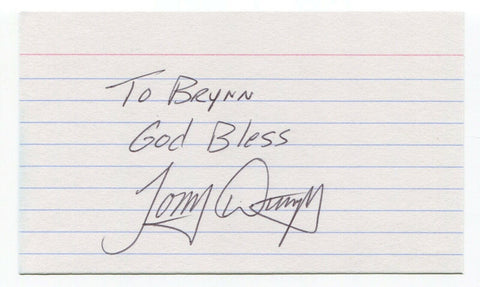 To Brynn
God Bless
Tony